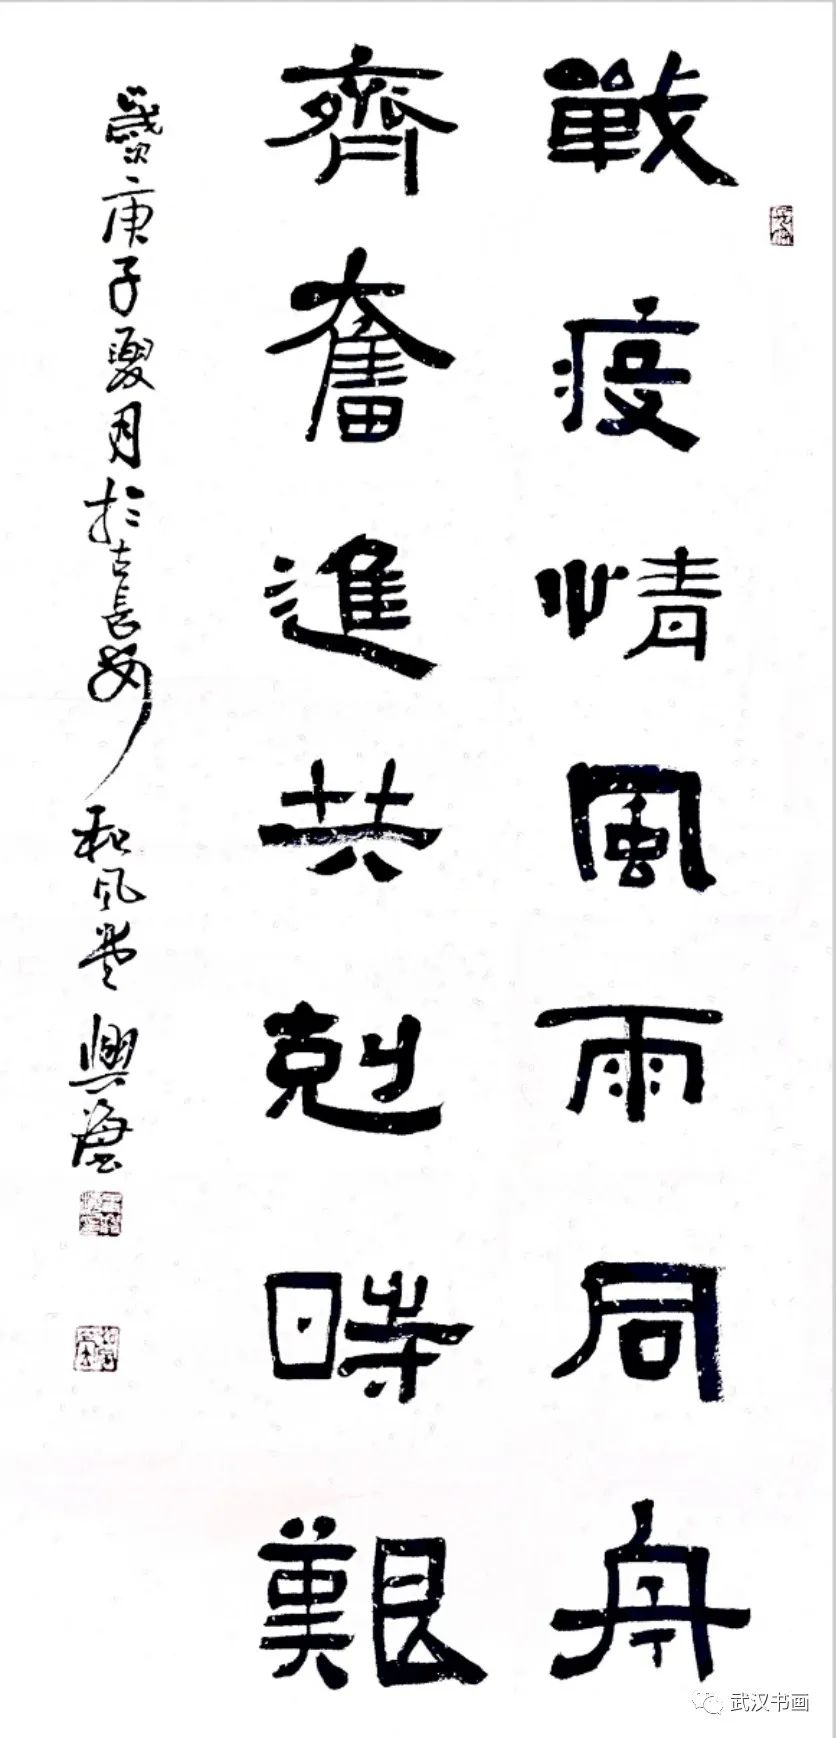 戰疫情風雨同舟
齊奮進共剋時艱
歲次庚子夏月於古長安和風堂興
武汉书画